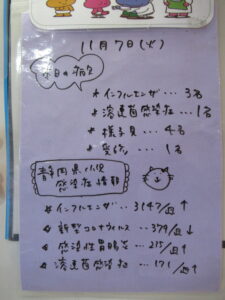 11月7日(火)
本日の病欠
*インフルエンザ・・・3名
*溶連菌感染症・・・1名
*様子見・・・4名
*受診・・・1名
静岡県小児
感染症情報
*インフルエンザ・・3147人↑
*新型コロナウィルス・・379人↓
*感染性胃腸炎・・・215人↑
*溶連菌感染症・・・171人↑